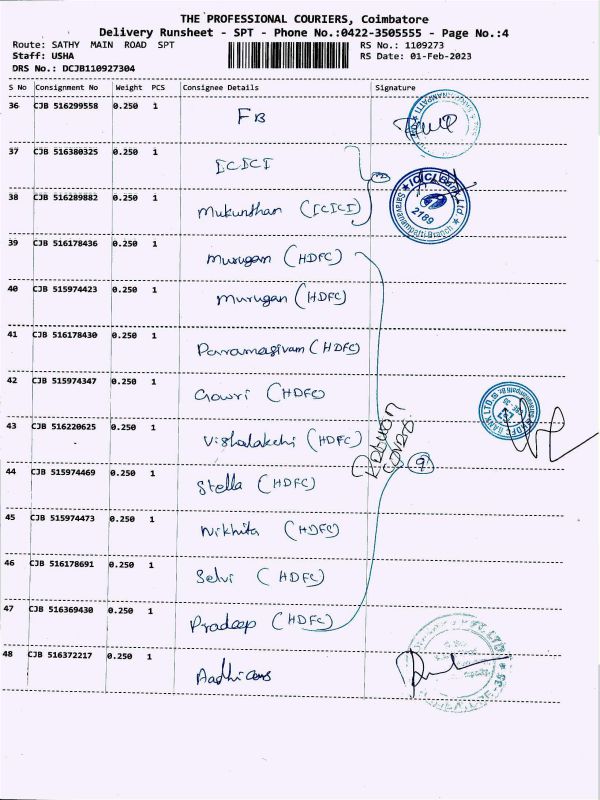 THE PROFESSIONAL COURIERS, Coimbatore
Delivery Runsheet - SPT - Phone No.:0422-3505555 - Page No.:4
Route: SATHY MAIN ROAD SPT RS No.: 1109273
Staff: USHA RS Date: 01-Feb-2023
DRS No.: DCJB110927304
S No Consignment No Weight PCS Consignee Details Signature
36 CJB 516299558 0.250 1 FB
37 CJB 516380325 0.250 1 ICICI
38 CJB 516289882 0.250 1 Mukunthan (ICICI)
ICICI Bank Ltd.
2189
Saravanampatti Branch
39 CJB 516178436 0.250 1 Murugan (HDFC)
40 CJB 515974423 0.250 1 Murugan (HDFC)
41 CJB 516178430 0.250 1 Paramasivam (HDFC)
42 CJB 515974347 0.250 1 Gowri (HDFC)
HDFC BANK LTD.
43 CJB 516220625 0.250 1 Vishalakchi (HDFC)
9
44 CJB 515974469 0.250 1 Stella (HDFC)
45 CJB 515974473 0.250 1 Nikhita (HDFC)
46 CJB 516178691 0.250 1 Selvi (HDFC)
47 CJB 516369430 0.250 1 Pradeep (HDFC)
48 CJB 516372217 0.250 1